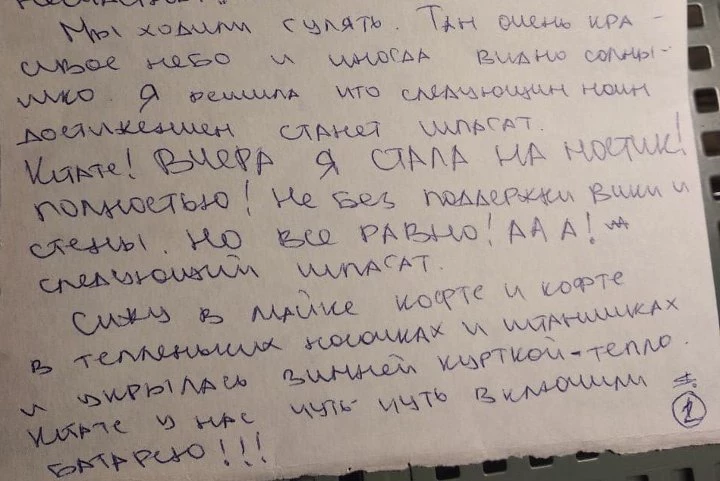 Мы ходили гулять. Там очень кра-
сивое небо и иногда видно солны-
шко. Я решила что следующим моим
достижением станет шпагат.
Кстате! Вчера я стала на мостик!
полностью! Не без поддержки Вики и
стены. Но все равно! ААА!
следующий шпагат.
Сижу в майке кофте и кофте
в тепленьких носочках и штанишках
и укрылась зимней курткой - тепло.
Кстате у нас чуть-чуть включили
батарею!!!
1